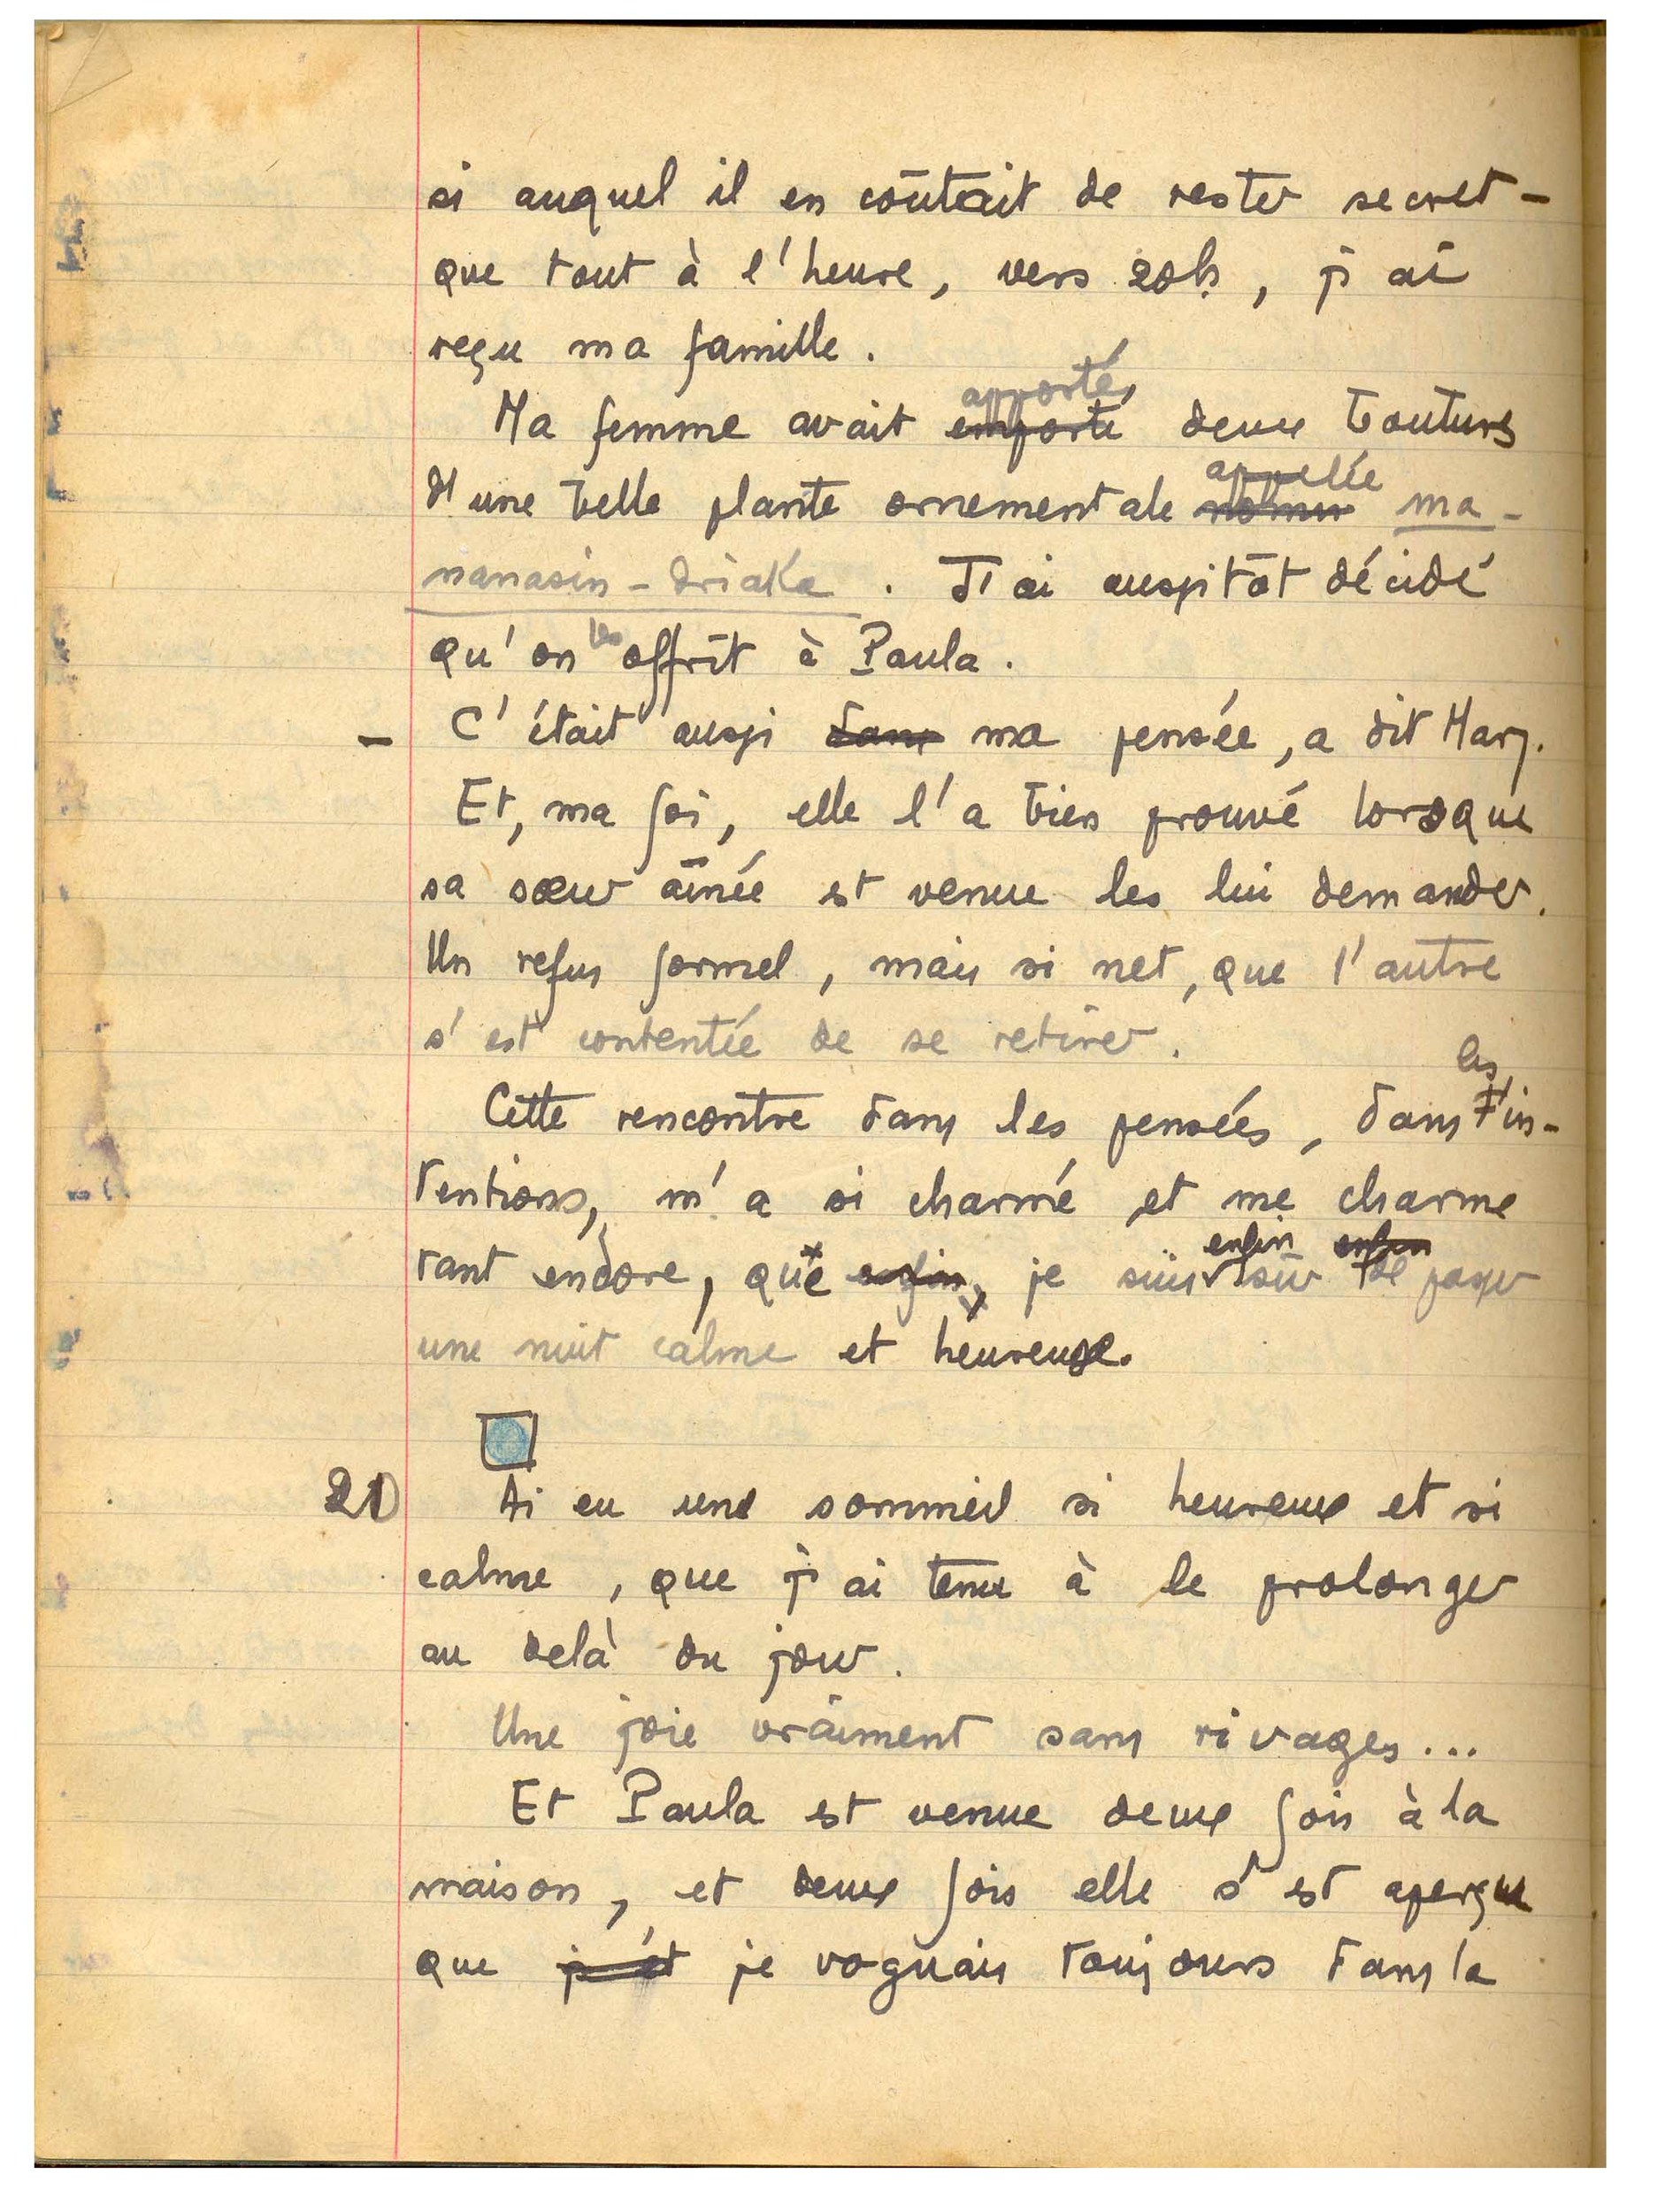 si auquel il en coûtait de rester secret -
que tout à l'heure, vers 20h, j'ai
reçu ma famille.
apportés
Ma femme avait emporté deux boutures
appelée
d'une belle plante ornementale ma-
nanasin-driaka. J'ai aussitôt décidé
qu'on les offrît à Paula.
- C'était aussi dans ma pensée, a dit Mary.
Et, ma foi, elle l'a bien prouvé lorsque
sa sœur aînée est venue les lui demander.
Un refus formel, mais si net, que l'autre
s'est contentée de se retirer.
les
Cette rencontre dans les pensées, dans l'in-
tentions, m'a si charmé et me charme
enfin enfin
tant encore, que enfin, je suis sûr de passer
une nuit calme et heureuse.
21 Ai eu une sommeil si heureux et si
calme, que j'ai tenu à le prolonger
au delà du jour.
Une joie vraiment sans rivages...
Et Paula est venue deux fois à la
maison, et deux fois elle s'est aperçue
que j'ét je voguais toujours dans la